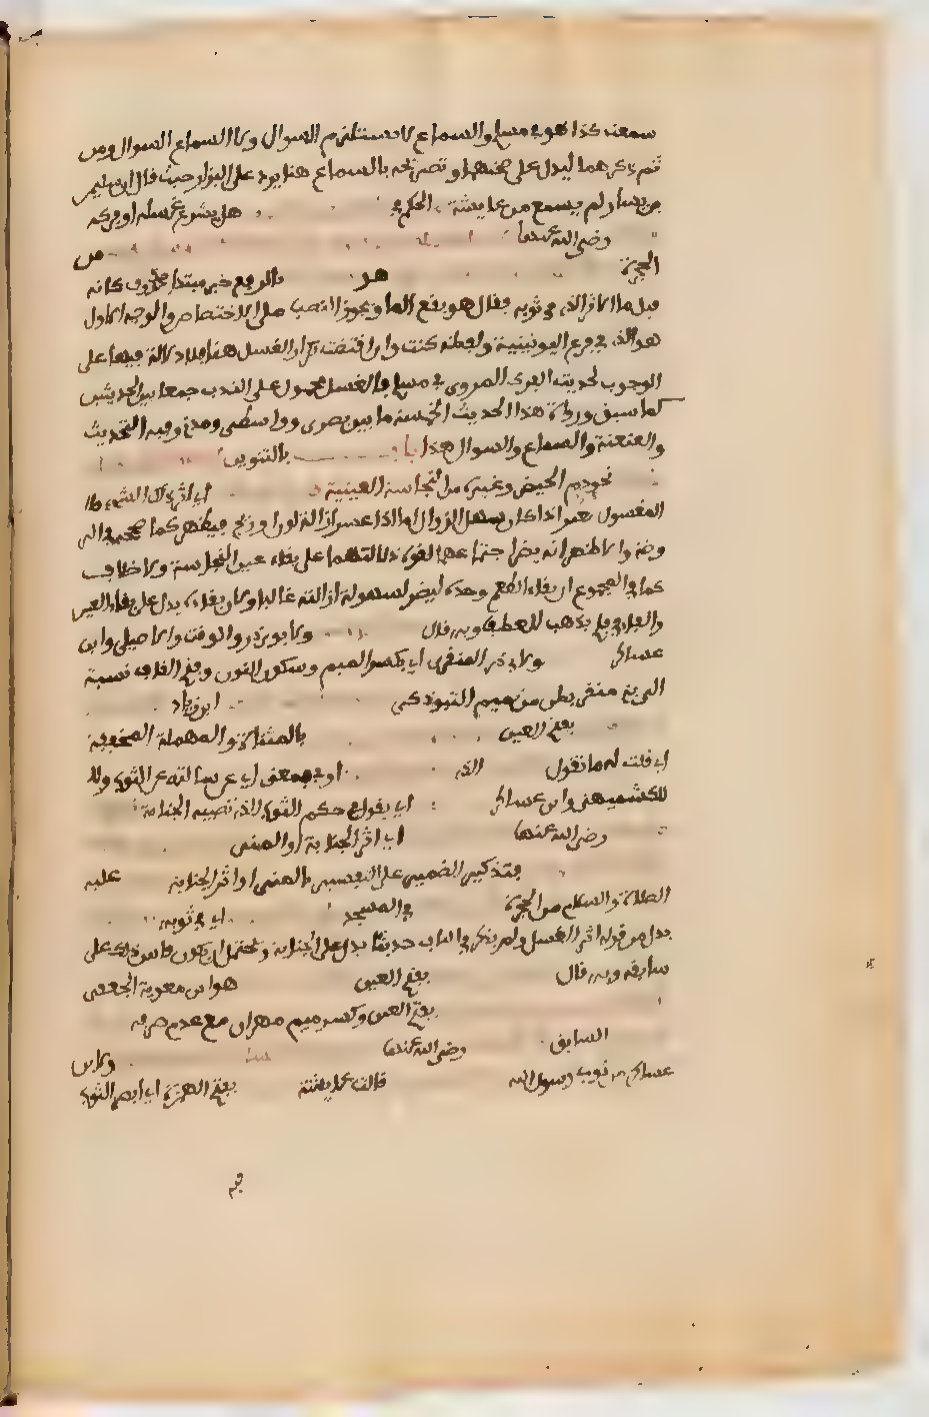 سمعت كذا هو في مسلم والسماع لا يستلزم السؤال ولا السماع السؤال ومن
ثم ذكرهما ليدل على صحتهما وتصريحه بالسماع هنا يرد على البزار حيث قال ان سليمن
بن يسار لم يسمع من عايشة الحكم في هل يشرع غسله او فركه
رضي الله عنها من
الحجرة هو بالرفع خبر مبتدا محذوف كانه
قيل ما الاثر الذي في ثوبه فقال هو بقع الما ويجوز النصب على الاختصاص والوجه الاول
هو الذي في فرع اليونينية ولفظة كنت وان اقتضت تكرار الغسل هنا فلا دلالة فيها على
الوجوب لحديث الفرك المروي في مسلم فالغسل محمول على الندب جمعا بين الحديثين
كما سبق ورواة هذا الحديث الخمسة ما بين بصري وواسطي ومدني وفيه التحديث
والعنعنة والسماع والسوال هذا باب بالتنوين
نحو دم الحيض وغيره من النجاسة العينية اي اثر ذلك الشيء
المغسول يضر اذا كان سهل الزوال اما اذا عسر ازالة لون او ريح فيطهر كما صححه في الر
وضة والاظهر انه يضر اجتماعهما لقوة دلالتهما على بقاء عين النجاسة ولا خلاف
كما في المجموع ان بقاء الطعم وحده ليضر لسهولة ازالته غالبا ولان بقاءه يدل على بقاء العين
والفاء في فلم يذهب للعطف وبه قال ولابوي ذر والوقت والاصيلي وابن
عساكر ولابي ذر المنقري اي بكسر الميم وسكون النون وفتح القاف نسبة
الى بني منقر بطن من تميم التبوذكي ابن زياد
بفتح العين بالمثناة والمهملة المخففة
اي قلت له ما تقول الذي او في بمعنى اي عن سالته عن الثوب ولل
للكشميهني وابن عساكر اي يقول في حكم الثوب الذي تصيبه الجنابة
رضي الله عنها اي اثر الجنابة او المني
بتذكير الضمير على التفسير بالمني او اثر الجنابة عليه
الصلاة والسلام من الحجرة في المسجد اي في ثوبه
بدل من قوله اثر الغسل ولم يذكر في الباب حديثا يدل على الجنابة ويحتمل ان يكون قاس ذلك على
سابقه وبه قال بفتح العين هو ابن معوية الجعفي
بفتح العين وكسر ميم مهران مع عدم صرفه
السابق رضي الله عنها ولابن
عساكر من ثوب رسول الله قالت عايشة بفتح الهمزة اي ابصر الثوب
فيه